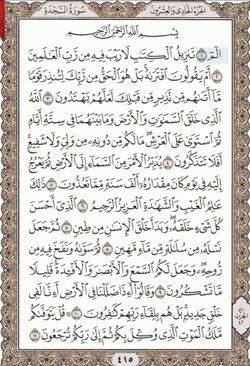 الجُزْءُ الحَادِي وَالعِشْرُونَ
سُورَةُ السَّجْدَةِ
بِسْمِ اللَّهِ الرَّحْمَٰنِ الرَّحِيمِ
الٓمٓ ١ تَنزِيلُ ٱلْكِتَٰبِ لَا رَيْبَ فِيهِ مِن رَّبِّ ٱلْعَٰلَمِينَ
٢ أَمْ يَقُولُونَ ٱفْتَرَىٰهُ بَلْ هُوَ ٱلْحَقُّ مِن رَّبِّكَ لِتُنذِرَ قَوْمًا
مَّآ أَتَىٰهُم مِّن نَّذِيرٍ مِّن قَبْلِكَ لَعَلَّهُمْ يَهْتَدُونَ ٣ ٱللَّهُ
ٱلَّذِى خَلَقَ ٱلسَّمَٰوَٰتِ وَٱلْأَرْضَ وَمَا بَيْنَهُمَا فِى سِتَّةِ أَيَّامٍ
ثُمَّ ٱسْتَوَىٰ عَلَى ٱلْعَرْشِ مَا لَكُم مِّن دُونِهِۦ مِن وَلِىٍّ وَلَا شَفِيعٍ
أَفَلَا تَتَذَكَّرُونَ ٤ يُدَبِّرُ ٱلْأَمْرَ مِنَ ٱلسَّمَآءِ إِلَى ٱلْأَرْضِ ثُمَّ يَعْرُجُ
إِلَيْهِ فِى يَوْمٍ كَانَ مِقْدَارُهُۥٓ أَلْفَ سَنَةٍ مِّمَّا تَعُدُّونَ ٥ ذَٰلِكَ
عَٰلِمُ ٱلْغَيْبِ وَٱلشَّهَٰدَةِ ٱلْعَزِيزُ ٱلرَّحِيمُ ٦ ٱلَّذِىٓ أَحْسَنَ
كُلَّ شَىْءٍ خَلَقَهُۥ وَبَدَأَ خَلْقَ ٱلْإِنسَٰنِ مِن طِينٍ ٧ ثُمَّ جَعَلَ
نَسْلَهُۥ مِن سُلَٰلَةٍ مِّن مَّآءٍ مَّهِينٍ ٨ ثُمَّ سَوَّىٰهُ وَنَفَخَ فِيهِ مِن
رُّوحِهِۦ وَجَعَلَ لَكُمُ ٱلسَّمْعَ وَٱلْأَبْصَٰرَ وَٱلْأَفْـِٔدَةَ قَلِيلًا
مَّا تَشْكُرُونَ ٩ وَقَالُوٓا۟ أَءِذَا ضَلَلْنَا فِى ٱلْأَرْضِ أَءِنَّا لَفِى
خَلْقٍ جَدِيدٍ بَلْ هُم بِلِقَآءِ رَبِّهِمْ كَٰفِرُونَ ١٠ قُلْ يَتَوَفَّىٰكُم
مَّلَكُ ٱلْمَوْتِ ٱلَّذِى وُكِّلَ بِكُمْ ثُمَّ إِلَىٰ رَبِّكُمْ تُرْجَعُونَ ١١
٤١٥